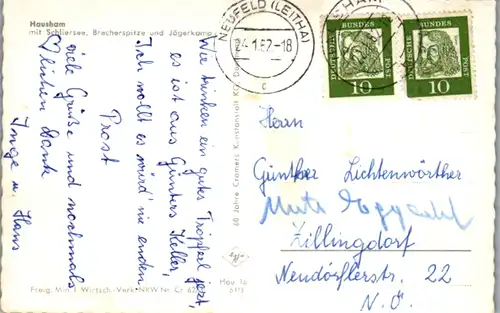 Hausham
mit Schliersee, Brecherspitze und Jägerkamp
Wir trinken ein gutes Tröpferl jetzt,
es ist aus Günters Keller,
Ich wollt es würd' nie enden
Prost
viele Grüße und nochmals
herzlichen Dank
Inge u. Hans
60 Jahre Cramers Kunstanstalt KG,
Freig. Min. f. Wirtsch. Verk. NRW Nr.
Hau 16
NEUFELD (LEITHA)
24.1.62-18
c
DEUTSCHE BUNDESPOST
10
DEUTSCHE BUNDESPOST
10
Herrn
Günther Lichtenwörther
Zillingdorf
Neudörflerstr. 22
N.Ö.